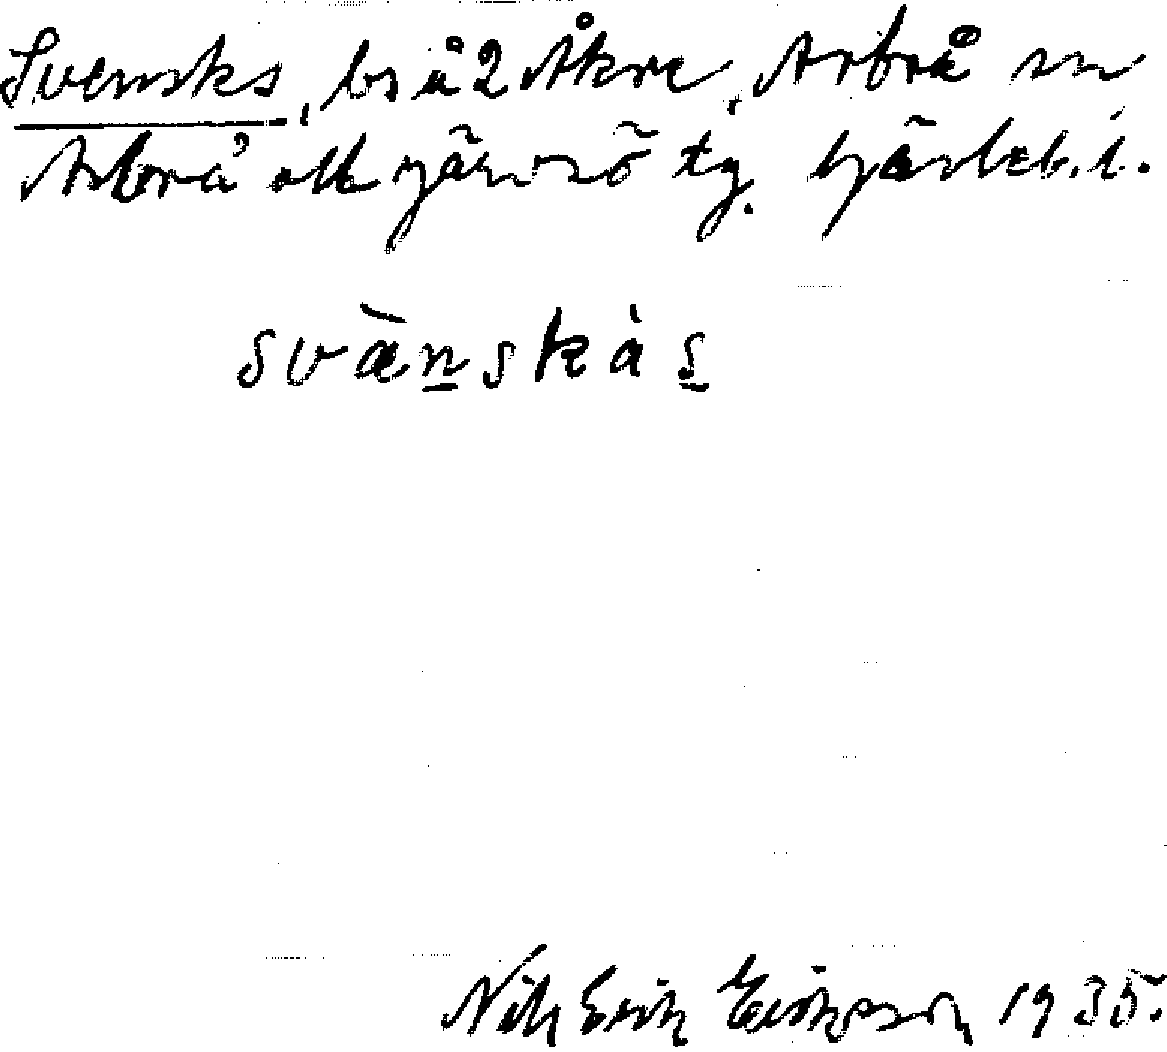 Svensks, bs å 2 Åkre, Arbrå sn
Arbrå ock Järvsö tg. Gävleb. l.
svànskàs
Nils Erik Eriksson 1935.